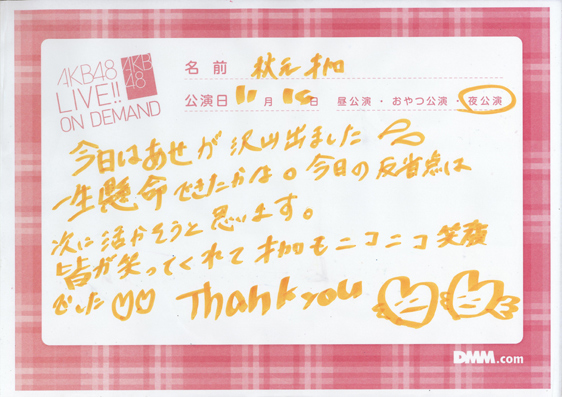 AKB48
LIVE!!
ON DEMAND
AKB
48
名前 秋元才加
公演日 11月 15日 昼公演・おやつ公演・夜公演
今日はあせが沢山出ました
一生懸命できたかな。今日の反省点は
次に活かそうと思います。
皆が笑ってくれて才加もニコニコ笑顔
でした♡♡ Thank you
DMM.com